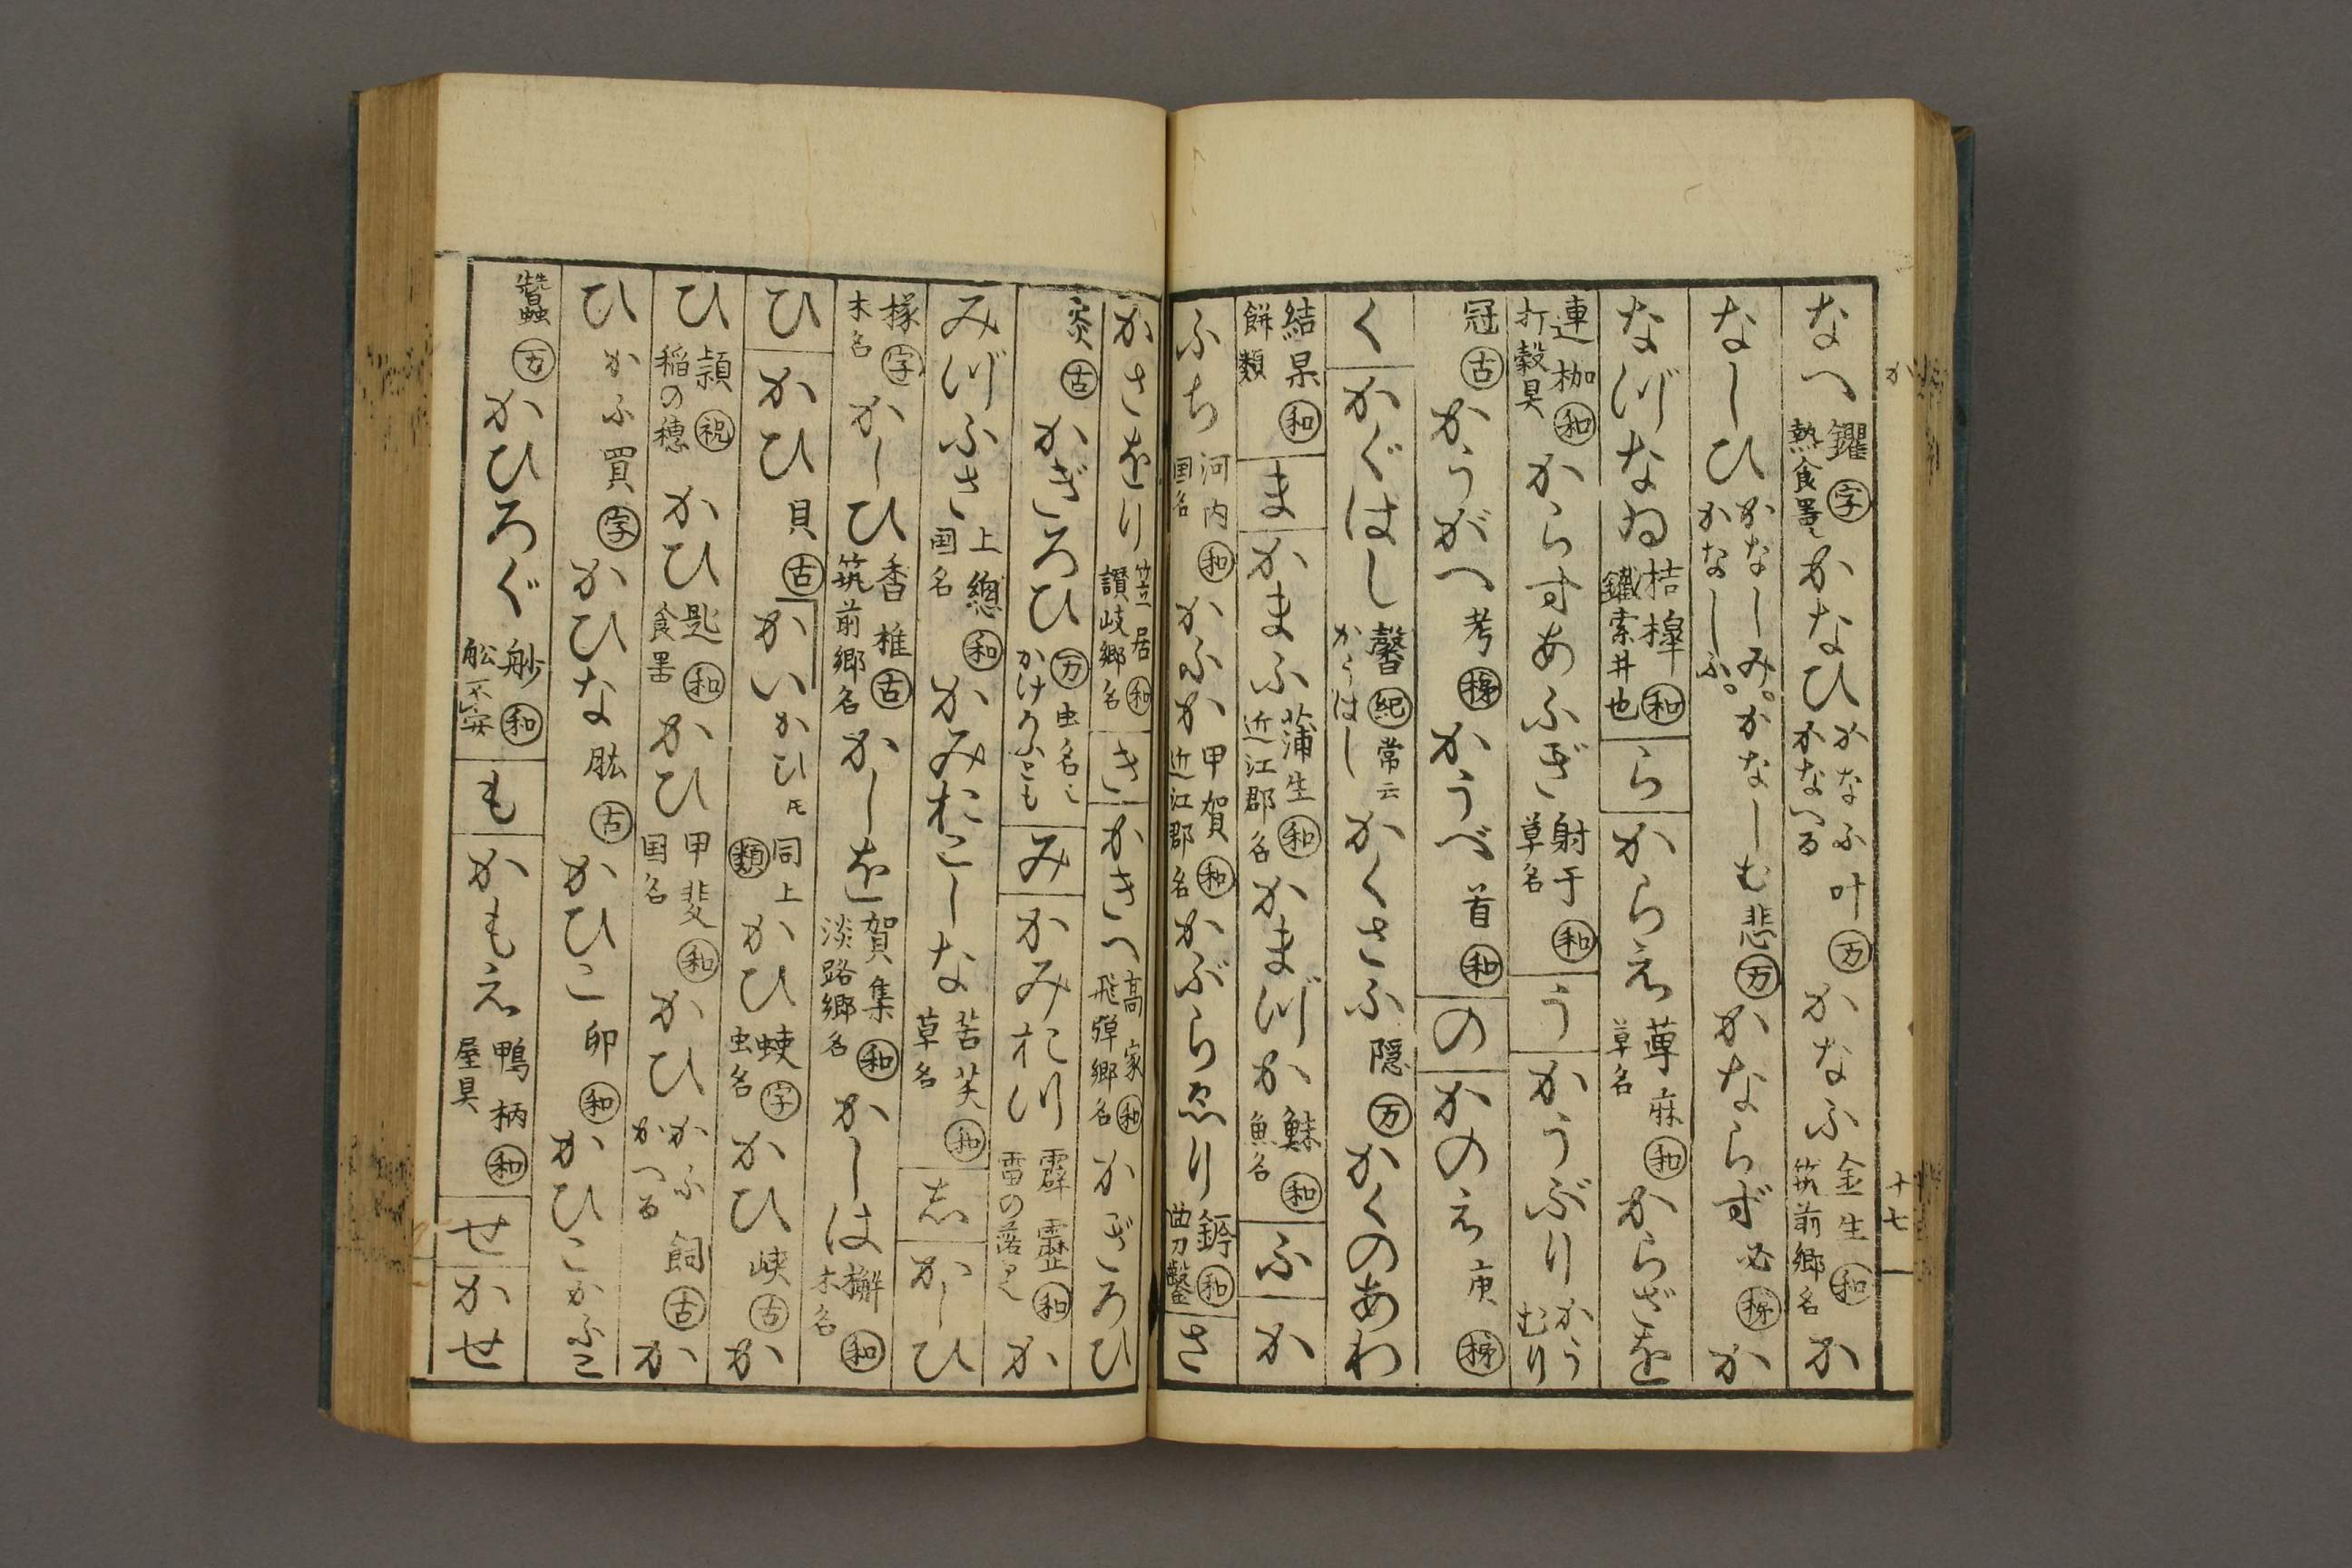 か
十七
なへ 鑺 字 熱食器也 かなひ かなふ かなへる 叶 万 かなふ 金生 和 筑前郷名 か
なしひ かなしみ。かなしむ かなしふ。 悲 万 かならず 必 か
なづなゐ 桔槹 和 鐵索井也 ら からえ 草麻 和 草名 からざを
連枷 和 打穀具 からすあふぎ 射干 和 草名 う かうぶり かうむり
冠 古 かうがへ 考 かうべ 首 和 の かのえ 庚
く かぐはし 馨 紀 かうはし 常云 かくさふ 隠 万 かくのあわ
結果 和 餅類 ま かまふ 蒲生 和 近江郡名 かまづか 和 魚名 ふ か
ふち 河内 和 国名 かふか 甲賀 和 近江郡名 かぶらゑり 和 曲刀鑿 さ
かさをり 笠居 和 讃岐郷名 き かきへ 高家 和 飛弾郷名 かぎろひ
炎 古 かぎろひ 万 虫名也 かけろふとも み かみおつ 霹靂 和 雷の落也 か
みづふさ 上總 和 国名 かみおこしな 苦芺 和 草名 志 かしひ
椽 字 木名 かしひ 香椎 古 筑前郷名 かしを 賀集 和 淡路郷名 かしは 槲 和 木名
ひ かひ 貝 古 かい かひ 同上 類 かひ 字 虫名 かひ 峡 古 か
ひ 頴 祝 稲の穂 かひ 匙 和 食器 かひ 甲斐 和 国名 かひ かふ かへる 飼 古 か
ひ かふ 買 字 かひな 肱 古 かひこ 卵 和 かひこ かふこ
蠶 万 かひろぐ 舯 和 舩不安 も かもえ 鴨柄 和 屋具 せ かせ